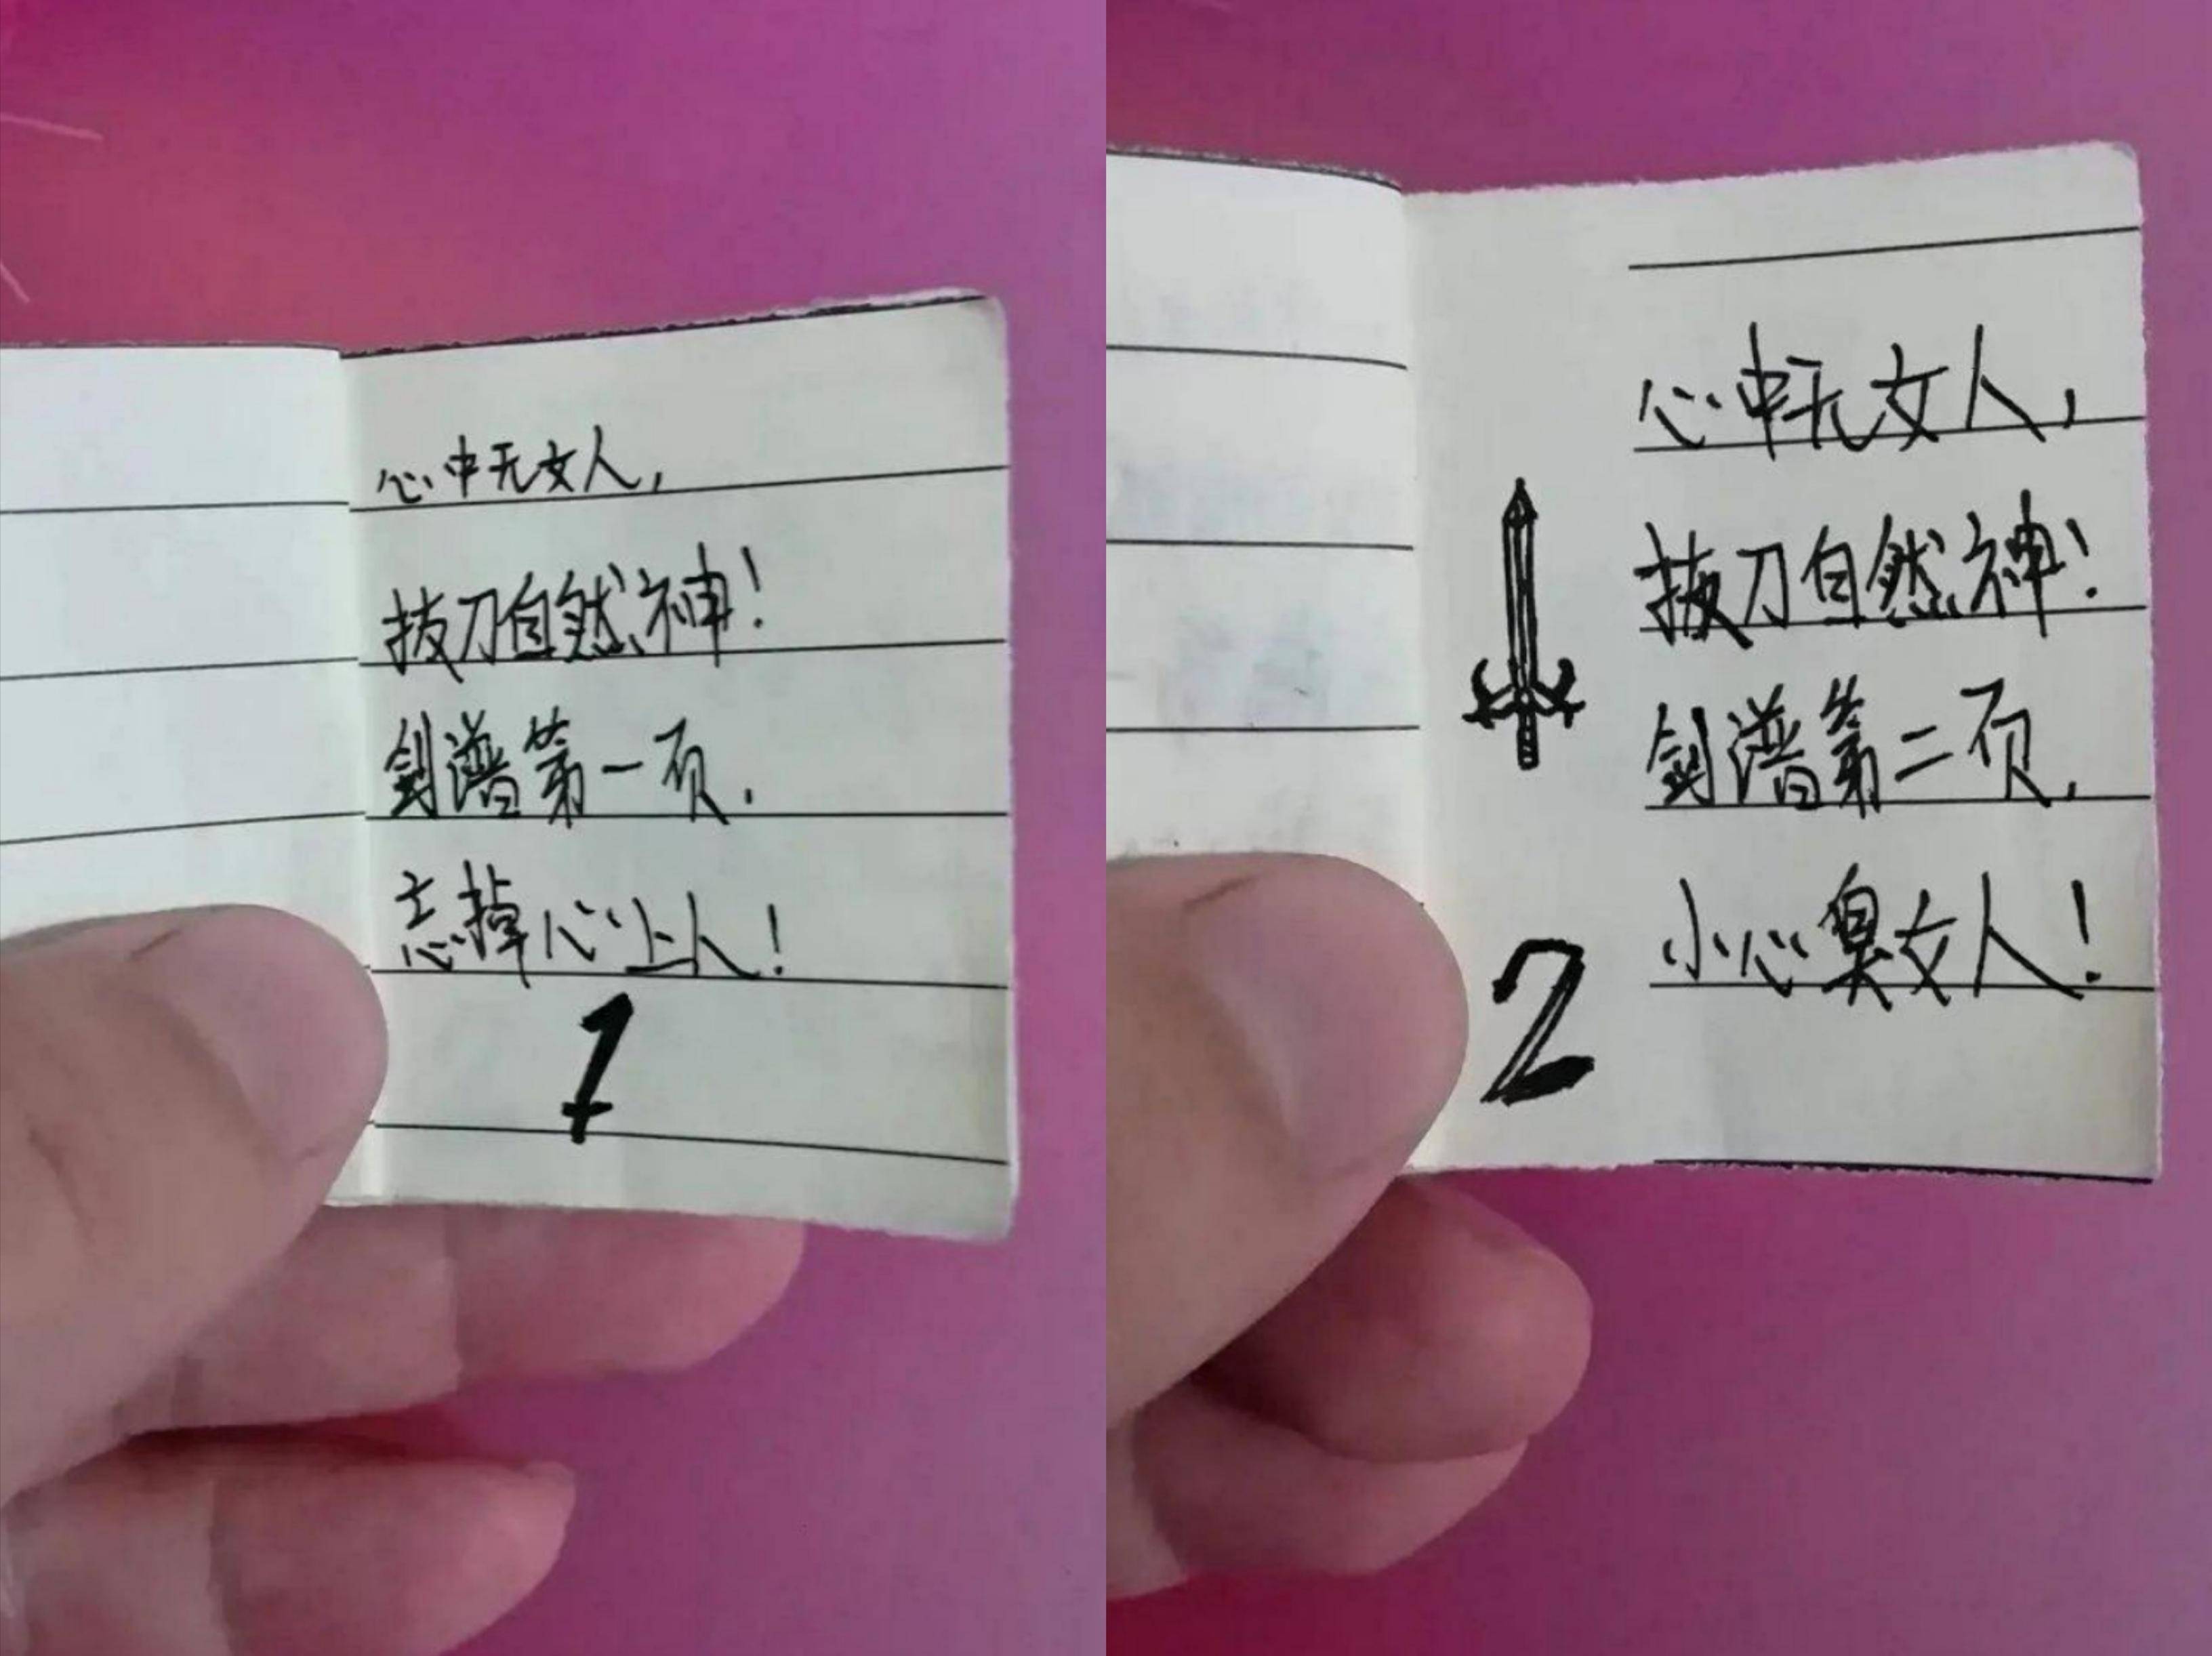 心中无女人，
拔刀自然神！
剑谱第一页，
忘掉心上人！
1
心中无女人，
拔刀自然神！
剑谱第二页，
小心臭女人！
2